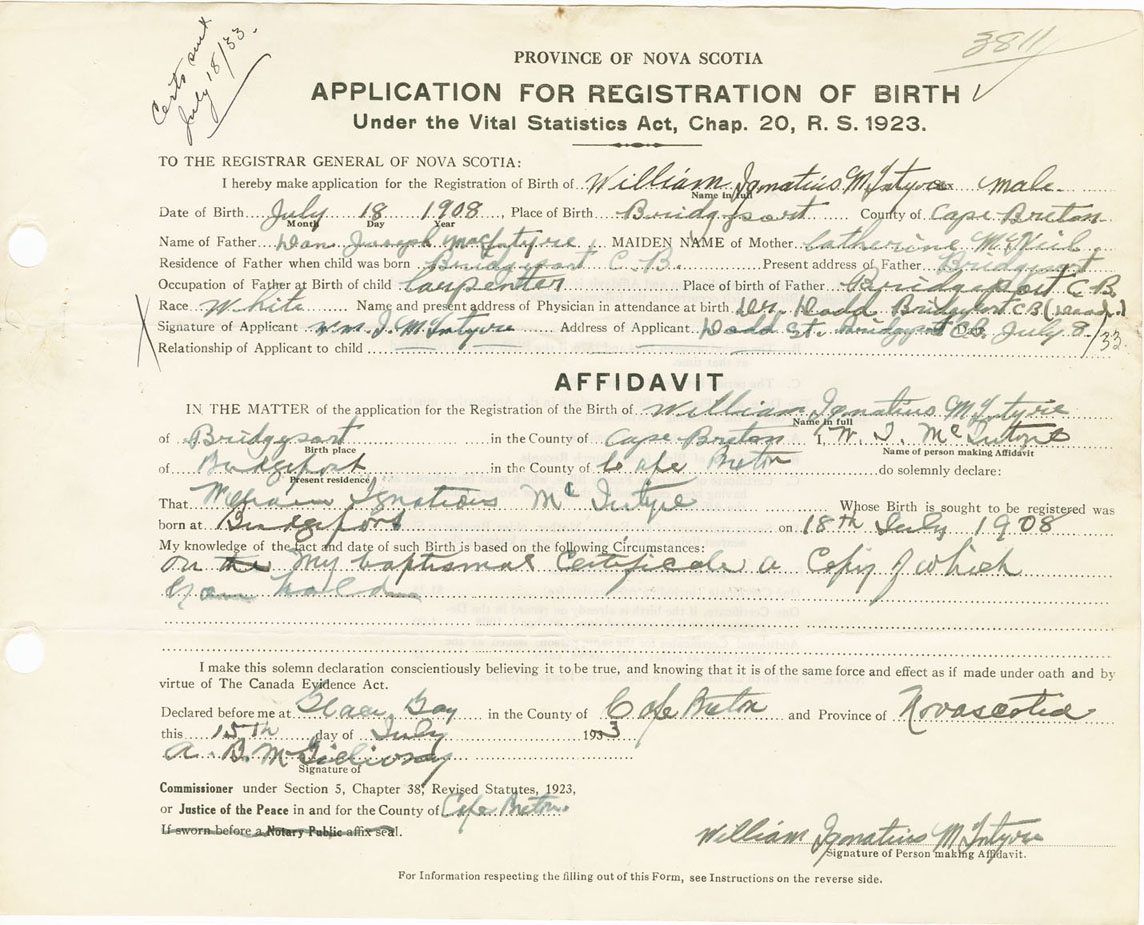 Certs sent
July 18/33.
3811
PROVINCE OF NOVA SCOTIA
APPLICATION FOR REGISTRATION OF BIRTH
Under the Vital Statistics Act, Chap. 20, R. S. 1923.
TO THE REGISTRAR GENERAL OF NOVA SCOTIA:
I hereby make application for the Registration of Birth of William Ignatius McIntyre Sex male
Name in full
Date of Birth July 18 1908, Place of Birth Bridgeport County of Cape Breton
Month Day Year
Name of Father Dan Joseph MacIntyre, MAIDEN NAME of Mother Catherine McNeil.
Residence of Father when child was born Bridgeport C.B. Present address of Father Bridgeport
Occupation of Father at Birth of child Carpenter Place of birth of Father Bridgeport C.B.
Race White Name and present address of Physician in attendance at birth Dr. Dodd Bridgeport C.B (Dead.)
Signature of Applicant Wm. I. McIntyre Address of Applicant Dodd St. Bridgeport C.B. Date July 8/33
Relationship of Applicant to child
AFFIDAVIT
IN THE MATTER of the application for the Registration of the Birth of William Ignatius McIntyre
Name in full
of Bridgeport in the County of Cape Breton I, W. I. McIntyre
Birth place Name of person making Affidavit
of Bridgeport in the County of Cape Breton do solemnly declare:
Present residence
That William Ignatious McIntyre Whose Birth is sought to be registered was
born at Bridgeport on 18th July 1908
My knowledge of the fact and date of such Birth is based on the following Circumstances:
on the My baptismal Certificate a Copy of which
hold
I make this solemn declaration conscientiously believing it to be true, and knowing that it is of the same force and effect as if made under oath and by
virtue of The Canada Evidence Act.
Declared before me at Glace Bay in the County of Cape Breton and Province of Novascotia
this 15th day of July 1933
A. B. McGillivray
Signature of
Commissioner under Section 5, Chapter 38, Revised Statutes, 1923,
or Justice of the Peace in and for the County of Cape Breton.
If sworn before a Notary Public affix seal.
William Ignatius McIntyre
Signature of Person making Affidavit.
For Information respecting the filling out of this Form, see Instructions on the reverse side.